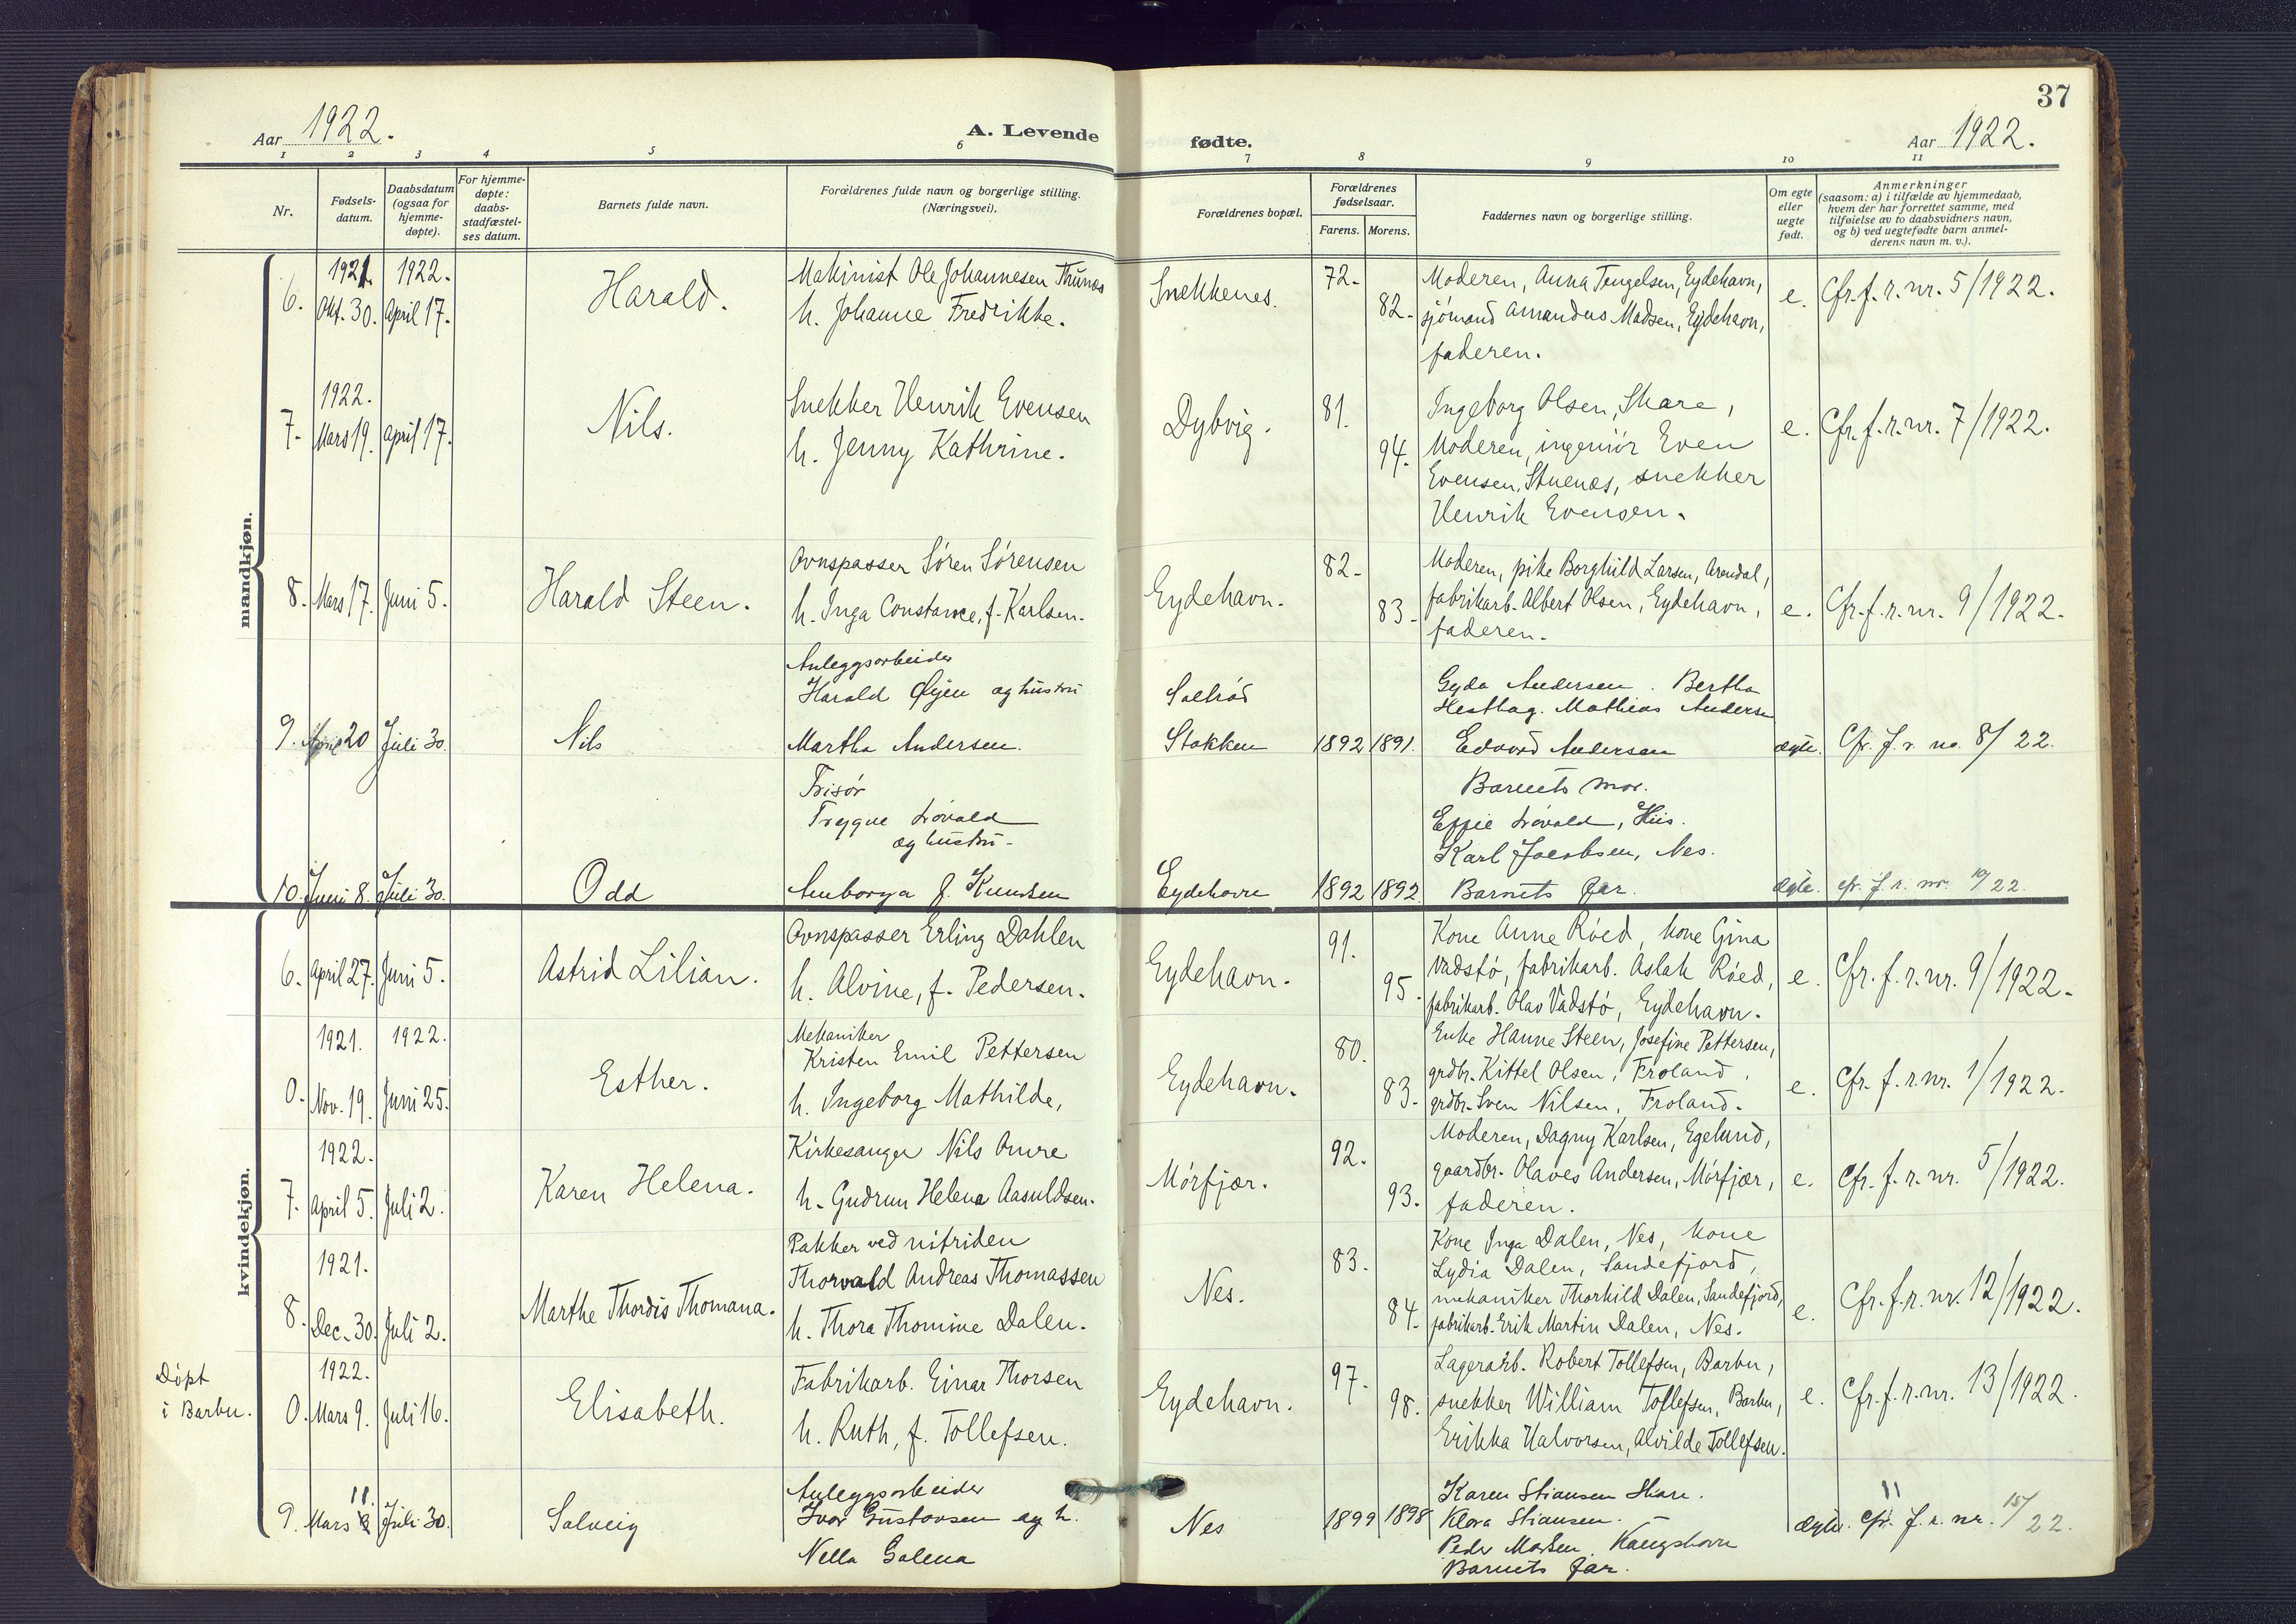 37
Aar 1922.
A. Levende
fødte.
Aar 1922.
1 2 3 4 5 6 7 8 9 10 11
Nr.
Fødsels-
datum.
Daabsdatum
(ogsaa for
hjemme-
døpte).
For hjemme-
døpte:
daabs-
stadfæstel-
ses datum.
Barnets fulde navn.
Forældrenes fulde navn og borgerlige stilling.
(Næringsvei).
Forældrenes bopæl.
Forældrenes
fødselsaar.
Farens. Morens.
Faddernes navn og borgerlige stilling.
Om egte
eller
uegte
født.
Anmerkninger
(saasom: a) i tilfælde av hjemmedaab,
hvem der har forrettet samme, med
tilføielse av to daabsvidners navn,
og b) ved uegtefødte barn anmel-
derens navn m. v.).
mandkjøn.
6.
1921. 1922.
Okt. 30. April 17.
Harald.
Makinist Ole Johannesen
h. Johanne Fredrikke.
Snekkenes.
72.
82.
Moderen, Anna Tengelsen, Eydehavn,
sjömand Amandus Madsen, Eydehavn,
faderen.
e. Cfr. f. r. nr. 5/1922.
7.
1922.
Mars 19. April 17.
Nils.
Snekker Henrik Evensen
h. Jenny Kathrine.
Dybvig.
81.
94.
Ingeborg Olsen, Skare,
Moderen, ingeniör Even
Evensen, Stuenæs, snekker
Henrik Evensen.
e. Cfr. f. r. nr. 7/1922.
8. Mars 17. Juni 5.
Harald Steen.
Ovnspasser Sören Sörensen
h. Inga Constance, f. Karlsen.
Eydehavn.
82.
83.
Moderen, pike Borghild Larsen, Arendal,
fabrikarb. Albert Olsen, Eydehavn,
faderen.
e. Cfr. f. r. nr. 9/1922.
9. April 20 Juli 30.
Nils
Anleggsarbeider
Harald Øyen og hustru
Martha Andersen.
Saltröd
Stokken
1892 1891.
Gyda Andersen. Bertha
Hesthag. Mathias Andersen
Edvard Andersen
ægte. Cfr. f. r. no. 8/22.
10. Juni 8. Juli 30.
Odd
Frisör
Trygve Lövold
og hustru
f. Knudsen
Eydehavn
1892 1892.
Barnets mor.
Effie Lövold, His.
Karl Jacobsen, Nes.
Barnets far.
ægte. cfr. f. r. nr. 10/22.
kvindekjøn.
6. April 27. Juni 5.
Astrid Lilian.
Ovnspasser Erling Dahlen
h. Alvine, f. Pedersen.
Eydehavn.
91.
95.
Kone Anne Röed, kone Gina
Vadstö, fabrikarb. Aslak Röed,
fabrikarb. Olav Vadstö, Eydehavn.
e. Cfr. f. r. nr. 9/1922.
0.
1921. 1922.
Nov. 19. Juni 25.
Esther.
Mekaniker
Kristen Emil Pettersen
h. Ingeborg Mathilde,
Eydehavn.
80.
83.
Enke Hanne Steen, Josefine Pettersen,
grdbr. Kittel Olsen, Froland,
grdbr. Sven Nilsen, Froland.
e. Cfr. f. r. nr. 1/1922.
7.
1922.
April 5. Juli 2.
Karen Helena.
Kirkesanger Nils Omre
h. Gudrun Helena Aasuldsen.
Mörfjær.
92.
93.
Moderen, Dagny Karlsen, Egelund,
gaardbr. Olaves Andersen, Mörfjær,
faderen.
e. Cfr. f. r. nr. 5/1922.
8.
1921.
Dec. 30. Juli 2.
Marthe Thordis Thomana.
Pakker ved nitriden
Thorvald Andreas Thomassen
h. Thora Thomine Dalen.
Nes.
83.
84.
Kone Inga Dalen, Nes, kone
Lydia Dalen, Sandefjord,
mekaniker Thorkild Dalen, Sandefjord,
fabrikarb. Erik Martin Dalen, Nes.
e. Cfr. f. r. nr. 12/1922.
Döpt
i Barbu.
0.
1922.
Mars 9. Juli 16.
Elisabeth.
Fabrikarb. Einar Thorsen
h. Ruth, f. Tollefsen.
Eydehavn.
97.
98.
Lagerarb. Robert Tollefsen, Barbu,
snekker William Tollefsen, Barbu,
Erikka Halvorsen, Alvilde Tollefsen.
e. Cfr. f. r. nr. 13/1922.
9. Mars 11. Juli 30.
Solveig
Anleggsarbeider
Ivar Gustavsen og h.
Nella Galena
Nes
1899 1898
Karen Stiansen Skare.
Klara Stiansen.
Peder Madsen, Kongshavn
Barnets far.
ægte. cfr. f. r. nr. 15/22.